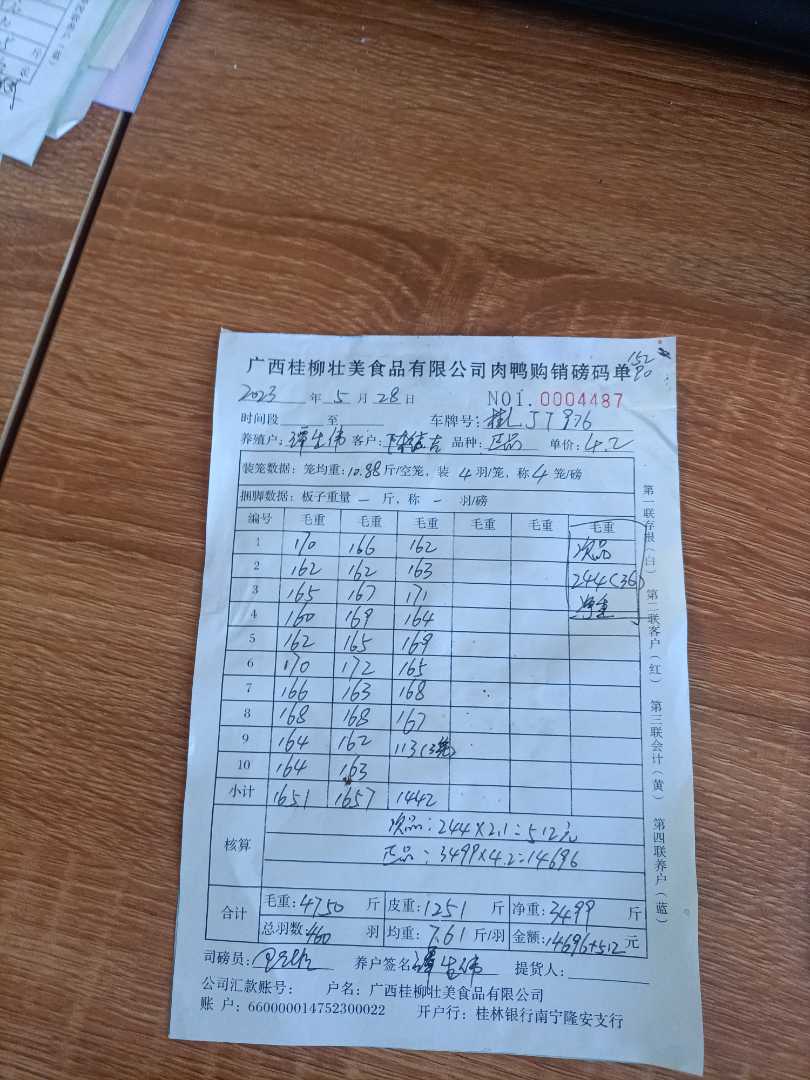 152
20
广西桂柳壮美食品有限公司肉鸭购销磅码单
2023 年 5 月 28 日 NO1.0004487
时间段 至 车牌号: 桂L J7976
养殖户: 伟 客户: 品种: 正品 单价: 4.2
装笼数据: 笼均重: 10.88 斤/空笼, 装 4 羽/笼, 称 4 笼/磅
捆脚数据: 板子重量 一 斤, 称 一 羽/磅
编号 毛重 毛重 毛重 毛重 毛重 毛重
1 170 166 162 次品
2 162 162 163 244(36)
3 165 167 171 净重
4 160 169 164
5 162 165 169
6 170 172 165
7 166 163 168
8 168 168 167
9 164 162 113(3笼)
10 164 163
小计 1651 1657 1442
核算 次品: 244×2.1=512元
正品: 3499×4.2=14696
合计 毛重: 4750 斤 皮重: 1251 斤 净重: 3499 斤
总羽数 460 羽 均重: 7.61 斤/羽 金额: 14696+512 元
司磅员: 养户签名 伟 提货人:
公司汇款账号: 户名: 广西桂柳壮美食品有限公司
账户: 660000014752300022 开户行: 桂林银行南宁隆安支行
第一联存根(白) 第二联客户(红) 第三联会计(黄) 第四联养户(蓝)